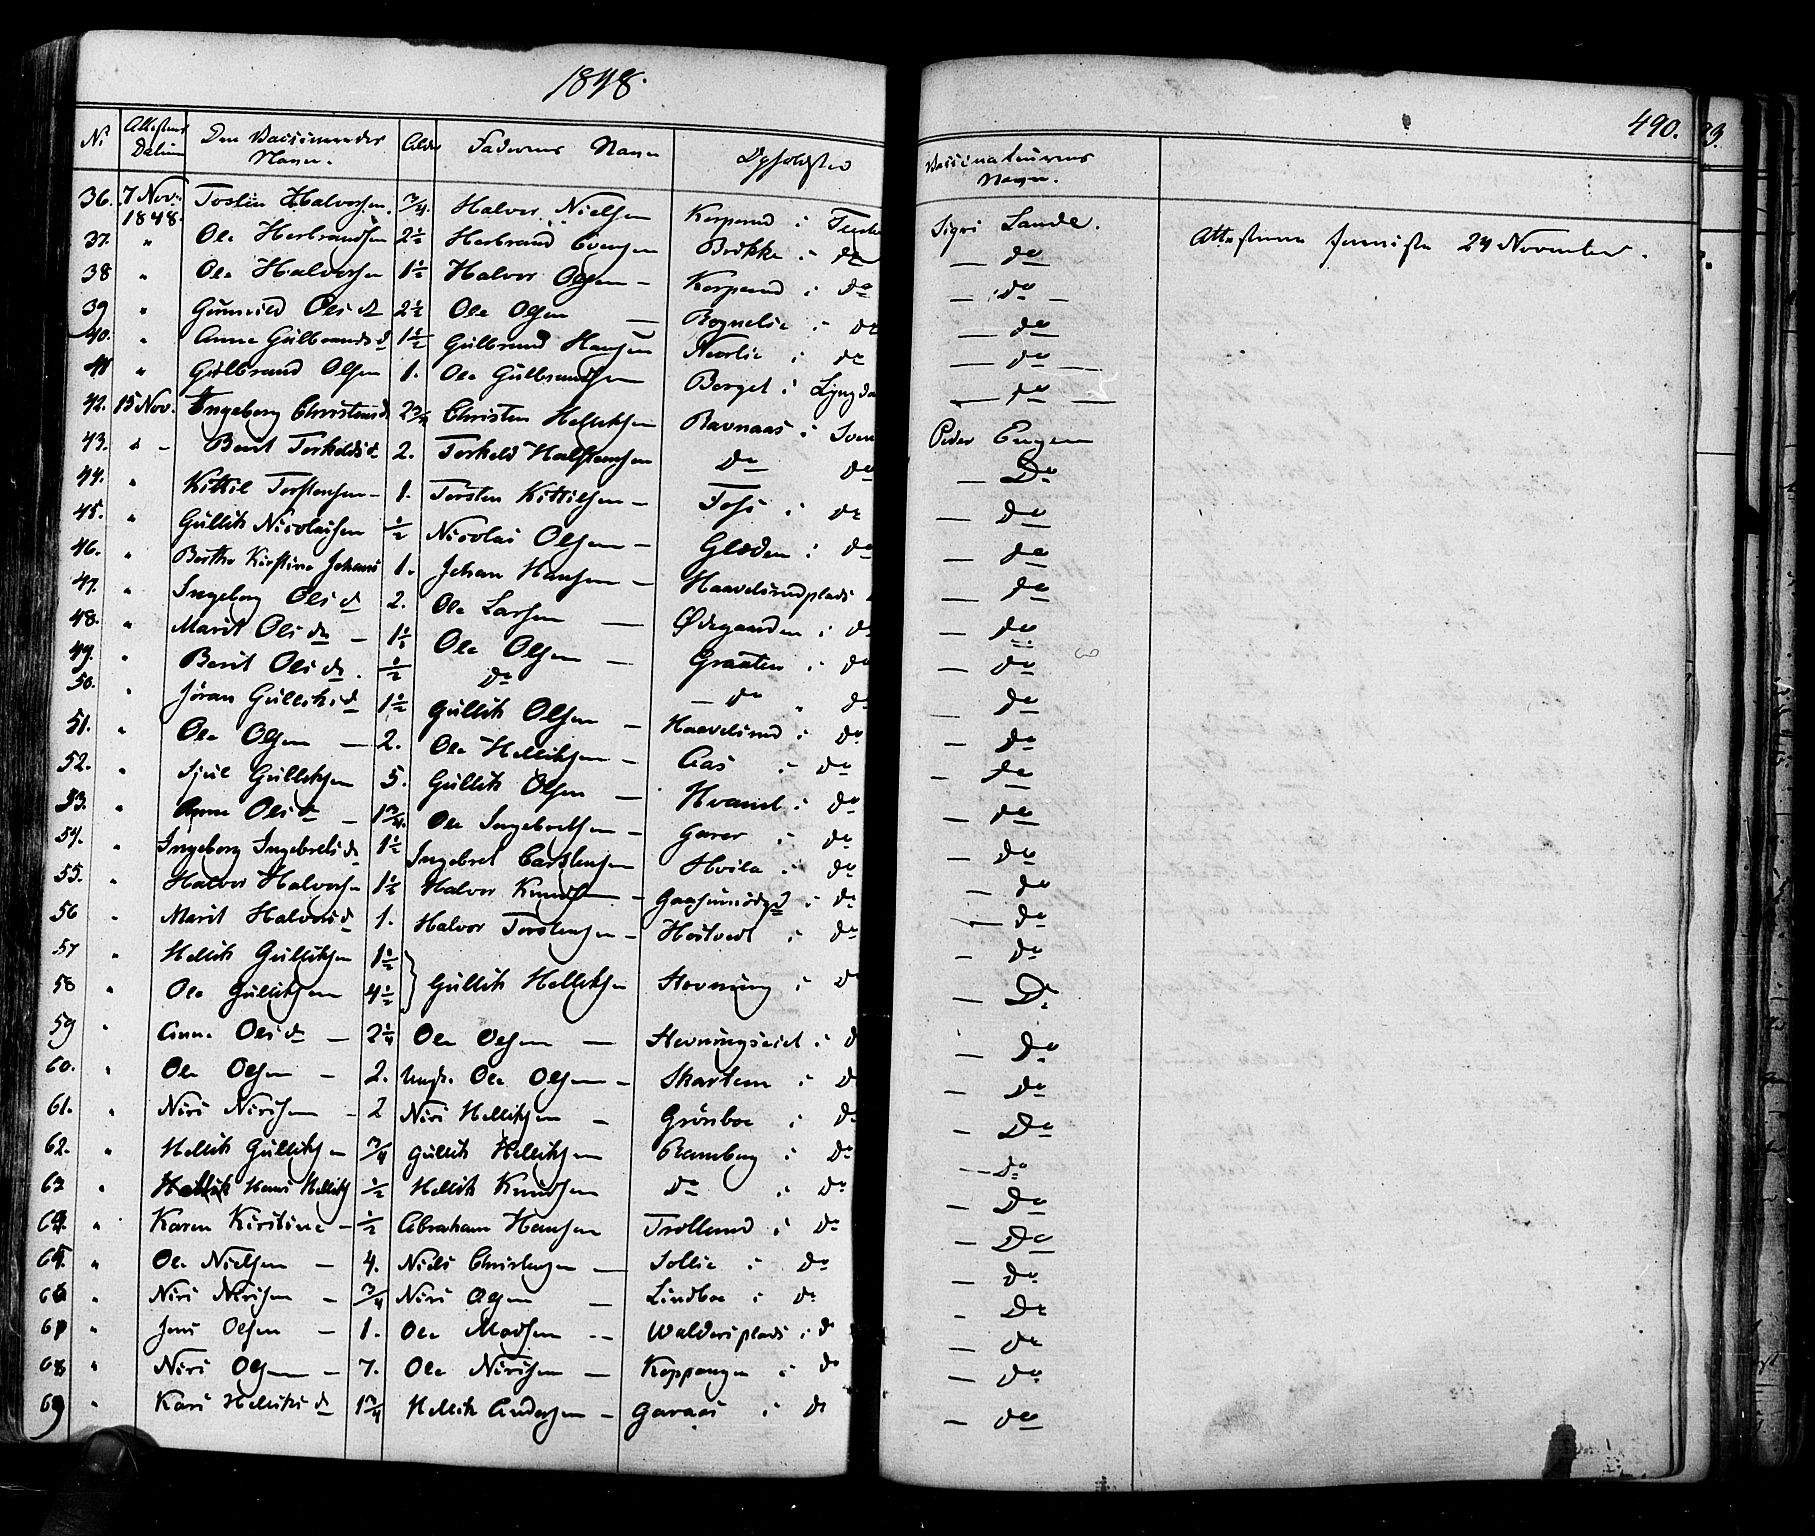 1848.
490.
No Attestens Datum Den Vaccineredes Navn. Alder Faderens Navn Opholdsted Vaccinateurens Navn.
36. 7 Nov. 1848. Halvorsen. 3/4. Halvor Nielsen i Sigri Lande. 24 November.
37. " Ole Herbrandsen 2 1/2 Herbrand Evensen Brekke i do — do
38 " Ole Halvorsen 1 1/2 Halvor Olsen — i do — do —
39 " Gunnild Olsd 2 1/2 Ole Olsen — Rognelie i do — do
40. " Anne Gulbrandsd 1 1/2 Gulbrand Hansen i do — do —
41 " Gulbrand Olsen 1. Ole Gulbrandsen Berget i Lyngda — do —
42. 15 Nov. Ingeborg Christensd 2 3/4 Christen Helliksen Ravnaas i Sven Peder Engen
43. " - Berit Torkeldsd 2. Torkeld Halstensen do do — Do
44. " Kittil Torstensen — 1. Torsten Kittilsen — Foss i do — do
45. " Gullik Nicolaisen 1/2 Nicolai Olsen — Gladen i do — do
46. " Berthe Kirstine Johans 1. Johan Hansen — Haavelsrudplads — do
47. " Ingeborg Olsd 2. Ole Larsen — Ødegaarden i do — do
48. " Marit Olsd — 1 1/2 Ole Olsen — Graaten i do — do
49. " Berit Olsd. 1/2 do — do " do — do
50. " Jöran Gulliksd 1 1/2 Gullik Olsen — Haavelsrud i do — do
51. " Ole Olsen — 2. Ole Helliksen — Aas i do — do
52. " Sjul Gulliksen 5. Gullik Olsen — Hvamb i do — do
53. " Anne Olsd — 1 3/4. Ole Ingebretsen — Garer i do — do
54. " Ingeborg Ingebretsd 1 1/2 Ingebret Carstensen Hvila i do — do
55. " Halvor Halvorsen 1 1/2 Halvor Knudsen — i do — do
56 " Marit Halvorsd 1. Halvor Torstensen — Hostvedt i do — do
57 " Hellik Gulliksen 1 1/2 } Gullik Helliksen Stevning i do — do
58 " Ole Gulliksen 4 1/2 — Do
59 " Anne Olsd — 2 1/4 Ole Olsen — Stevningseiet i d — Do
60. " Ole Olsen — 2. Ungk. Ole Olsen — Skartem i d — Do
61. " Niri Nirisen — 2 Niri Helliksen — Grösboe i do — Do
62. " Hellik Gulliksen 3/4 Gullik Helliksen Ramberg i do — do
63 " Hellik Hans Hellik 1/2 Hellik Knudsen do " do — Do
64. " Karen Kirstine — 1/2 Abraham Hansen Trollerud i do — Do
65. " Ole Nielsen — 4. Niels Christensen — Sollie i do — do
66 " Niri Nirisen — 3/4 Niri Olsen — Lindboe i do — Do
67 " Jens Olsen — 1. Ole Madsen -- Waldersplads i d — do
68 " Niri Olsen — 7. Ole Nirisen — Koppangen i do — do
69 " Kari Helliksd 1 3/4 Hellik Andersen — Garaas i do — do